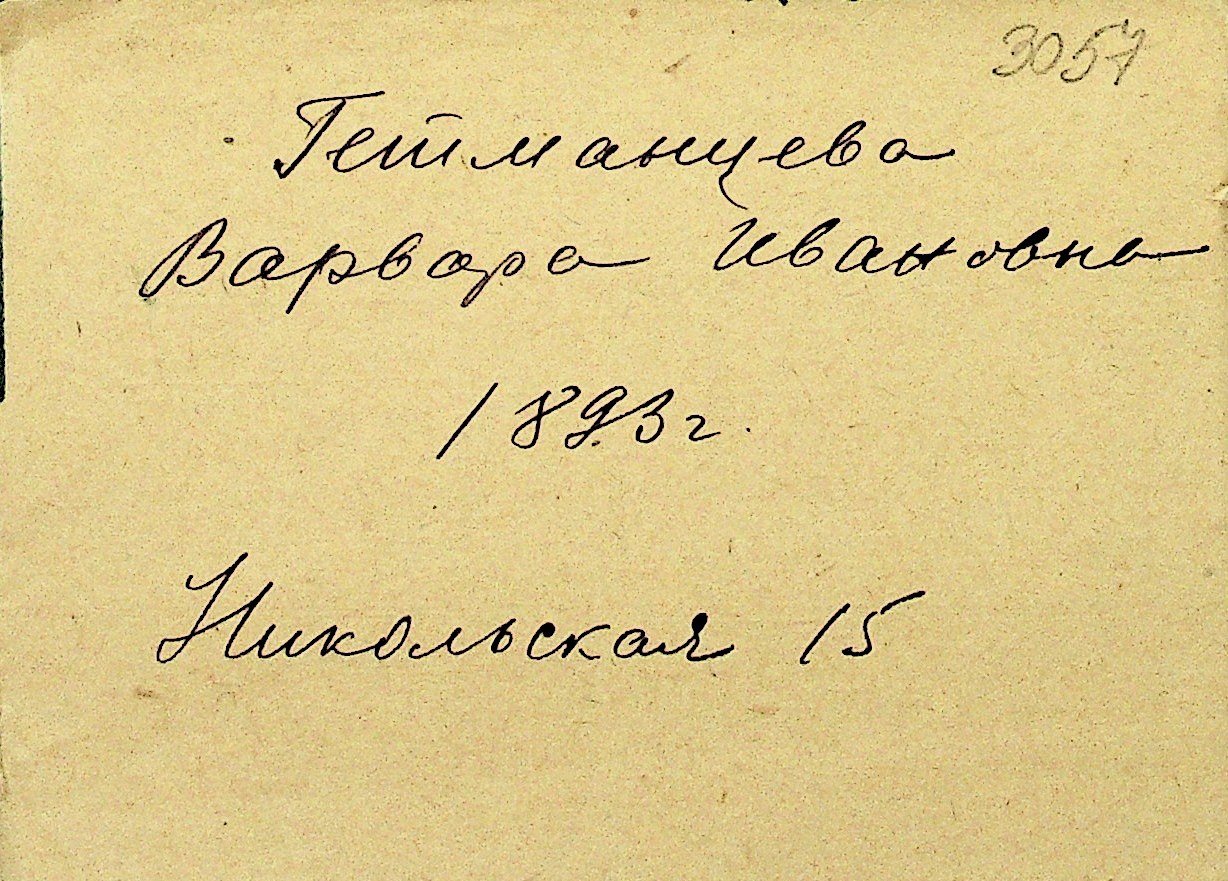 3057
Гетманцева
Варвара Ивановна
1893 г.
Никольская 15